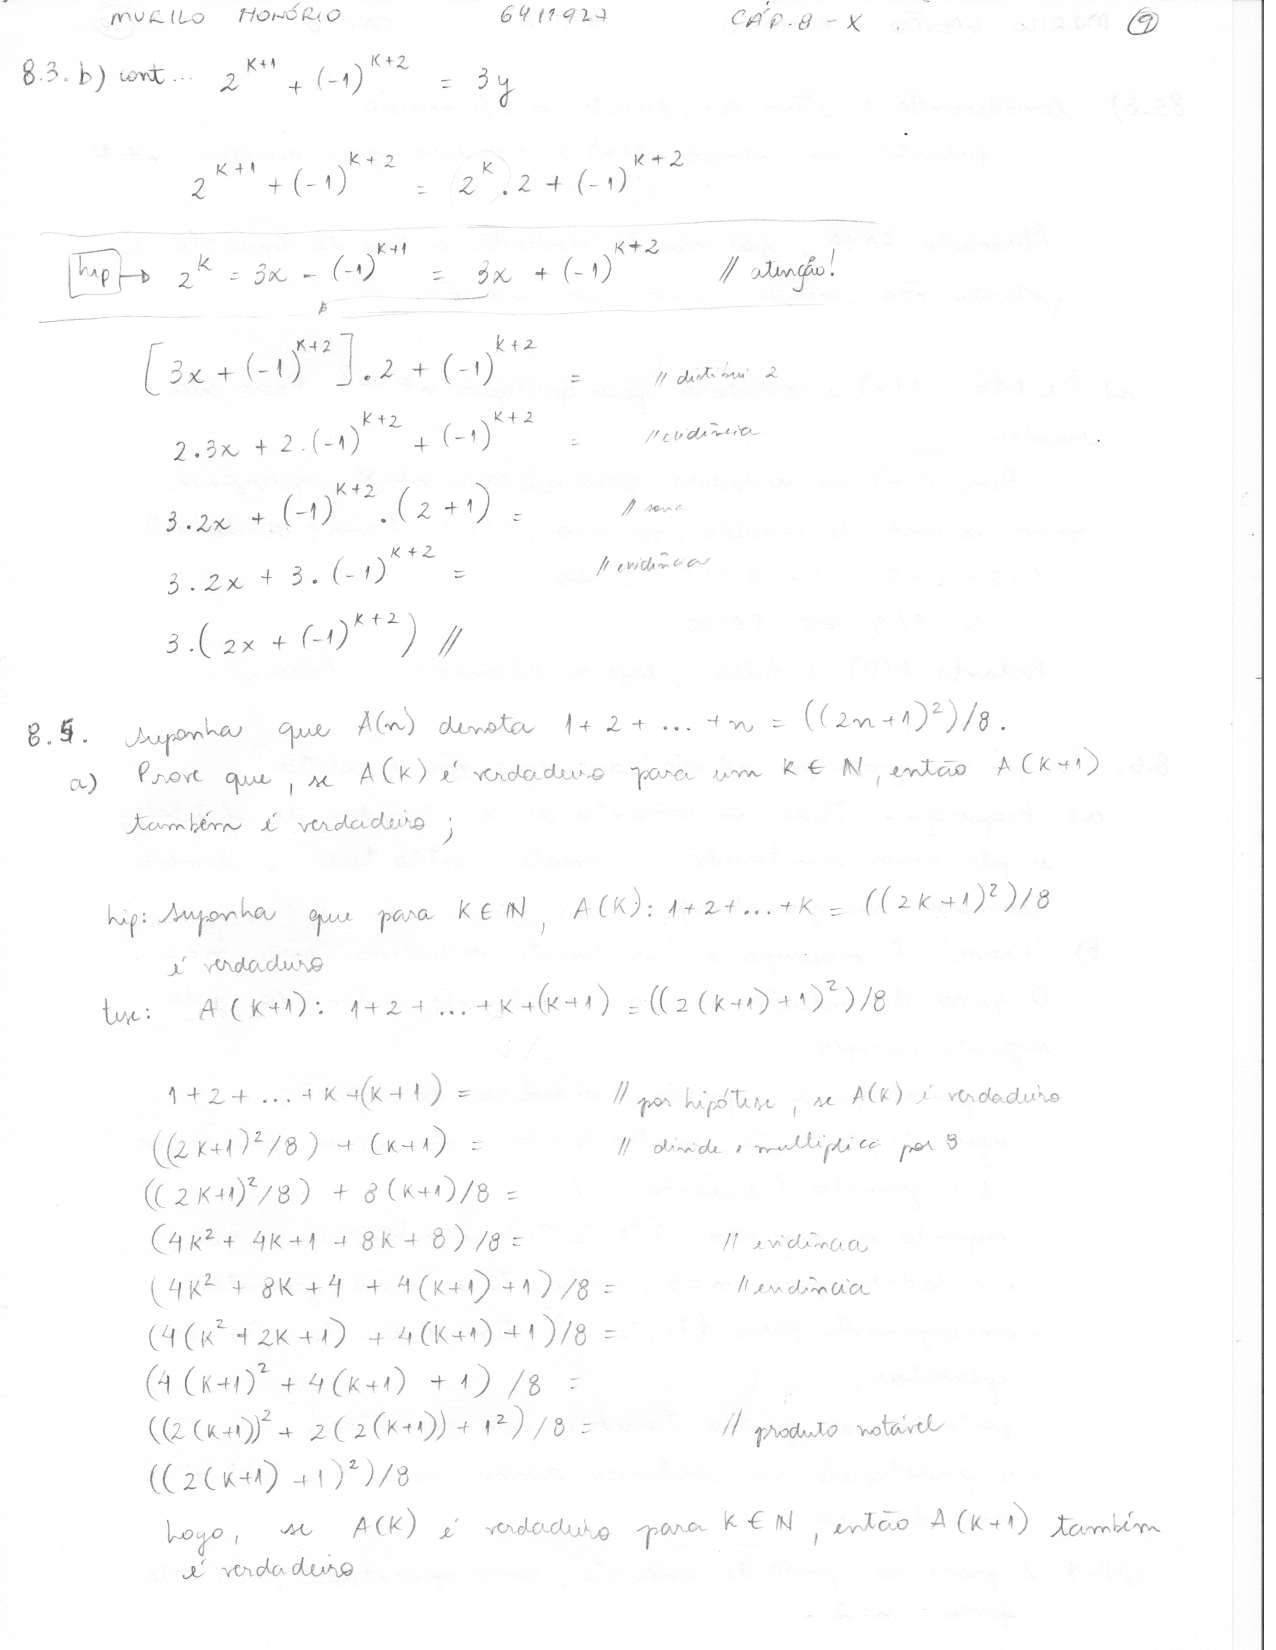 MURILO HONÓRIO 6411927 CÁP. 8 - X 9
8.3. b) cont... 2^{K+1} + (-1)^{K+2} = 3y
2^{K+1} + (-1)^{K+2} = 2^K . 2 + (-1)^{K+2}
hip → 2^K = 3x - (-1)^{K+1} = 3x + (-1)^{K+2} // atenção!
[3x + (-1)^{K+2}] . 2 + (-1)^{K+2} = // distribui 2
2.3x + 2.(-1)^{K+2} + (-1)^{K+2} = // evidência
3.2x + (-1)^{K+2} . (2+1) = // soma
3.2x + 3.(-1)^{K+2} = // evidência
3.(2x + (-1)^{K+2}) //
8.5. Suponha que A(n) denota 1+2+...+n = ((2n+1)^2)/8.
a) Prove que, se A(K) é verdadeiro para um K ∈ N, então A(K+1)
também é verdadeiro;
hip: Suponha que para K ∈ N, A(K): 1+2+...+K = ((2K+1)^2)/8
é verdadeiro
tese: A(K+1): 1+2+...+K+(K+1) = ((2(K+1)+1)^2)/8
1+2+...+K+(K+1) = // por hipótese, se A(K) é verdadeiro
((2K+1)^2/8) + (K+1) = // divide e multiplica por 8
((2K+1)^2/8) + 8(K+1)/8 =
(4K^2 + 4K+1 + 8K + 8)/8 = // evidência
(4K^2 + 8K+4 + 4(K+1)+1)/8 = // evidência
(4(K^2+2K+1) + 4(K+1)+1)/8 =
(4(K+1)^2 + 4(K+1) + 1)/8 =
((2(K+1))^2 + 2(2(K+1)) + 1^2)/8 = // produto notável
((2(K+1)+1)^2)/8
Logo, se A(K) é verdadeiro para K ∈ N, então A(K+1) também
é verdadeiro